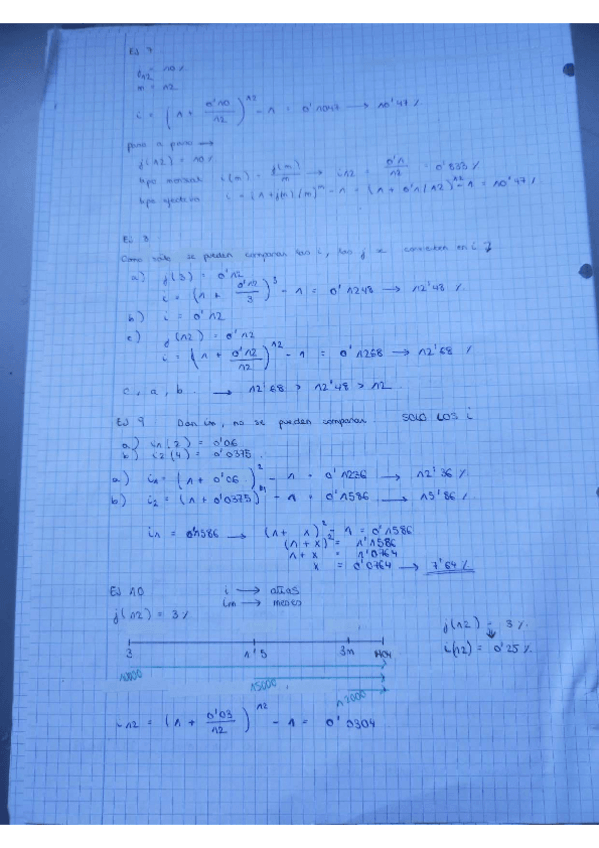 EJ 7
j12 = 10%
m = 12
i = (1 + 0'10/12)^12 - 1 = 0'1047 → 10'47 %
paso a paso →
j(12) = 10%
tipo mensual i(m) = j(m)/m → i12 = 0'1/12 = 0'833 %
tipo efectivo i = (1 + j(m)/m)^m - 1 = (1 + 0'1/12)^12 - 1 = 10'47%
EJ 8
Como solo se pueden comparar las i, las j se convierten en i
a) j(3) = 0'12
i = (1 + 0'12/3)^3 - 1 = 0'1248 → 12'48 %
b) i = 0'12
c) j(12) = 0'12
i = (1 + 0'12/12)^12 - 1 = 0'1268 → 12'68 %
c, a, b → 12'68 > 12'48 > 12
EJ 9 Dan im, no se pueden comparar SOLO LOS i
a) i1(2) = 0'06
b) i2(4) = 0'0375
a) i1 = (1 + 0'06)^2 - 1 = 0'1236 → 12'36 %
b) i2 = (1 + 0'0375)^4 - 1 = 0'1586 → 15'86 %
i1 = 0'1586 → (1 + x)^2 - 1 = 0'1586
(1 + x)^2 = 1'1586
1 + x = 1'0764
x = 0'0764 → 7'64 %
EJ 10 i → años
im → meses
j(12) = 3 %
j(12) = 3 %
i(12) = 0'25 %
3 1'5 3m HOY
15000
12000
i12 = (1 + 0'03/12)^12 - 1 = 0'0304